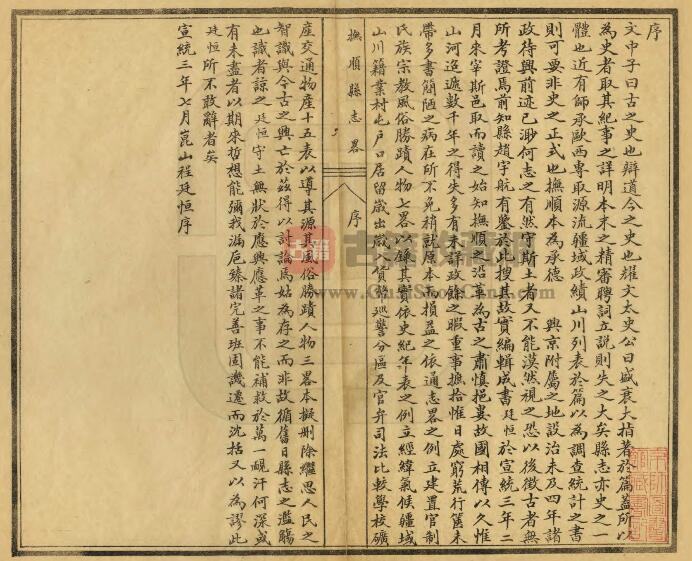 序
文中子曰古之史也辯道今之史也耀文太史公曰盛衰大指著於篇蓋所以
為史者取其紀事之詳明本末之精審聘詞立說則失之大矣縣志亦史之一
體也近有師承歐西專取源流疆域政績山川列表於篇以為調查統計之書
則可要非史之正式也撫順本為承德 興京附屬之地設治未及四年諸
政待興前迹已渺何志之有然守斯土者又不能漠然視之恐以後徵古者無
所考證焉前知縣趙宇航有鑒於此搜其故實編輯成書廷恒於宣統三年二
月來宰斯邑取而讀之始知撫順之沿革為古之肅慎挹婁故國相傳以久惟
山河迢遞數千年之得失多有未詳政餘之暇重事摭拾惟日處窮荒行篋未
帶多書簡陋之病在所不免稍就原本為損益之依通志畧之例立建置官制
氏族宗教風俗勝蹟人物七畧以錄其實依史紀年表之例立經緯氣候疆域
山川籍業村屯戶口居留歲出歲入貨幣巡警分區及官弁司法比較學校礦
撫順縣志畧
序
產交通物產十五表以導其源其風俗勝蹟人物三畧本擬刪除繼思人民之
智識與今古之興亡於茲得以討論焉姑為存之而非故循舊日縣志之濫觴
也識者諒之廷恒守土無狀於應興應革之事不能補救於萬一靦汗何深或
有未盡者以期來哲想能彌我漏巵臻諸完善班固譏遷而沈括又以為謬此
廷恒所不敢辭者矣
宣統三年七月崑山程廷恒序
古籍